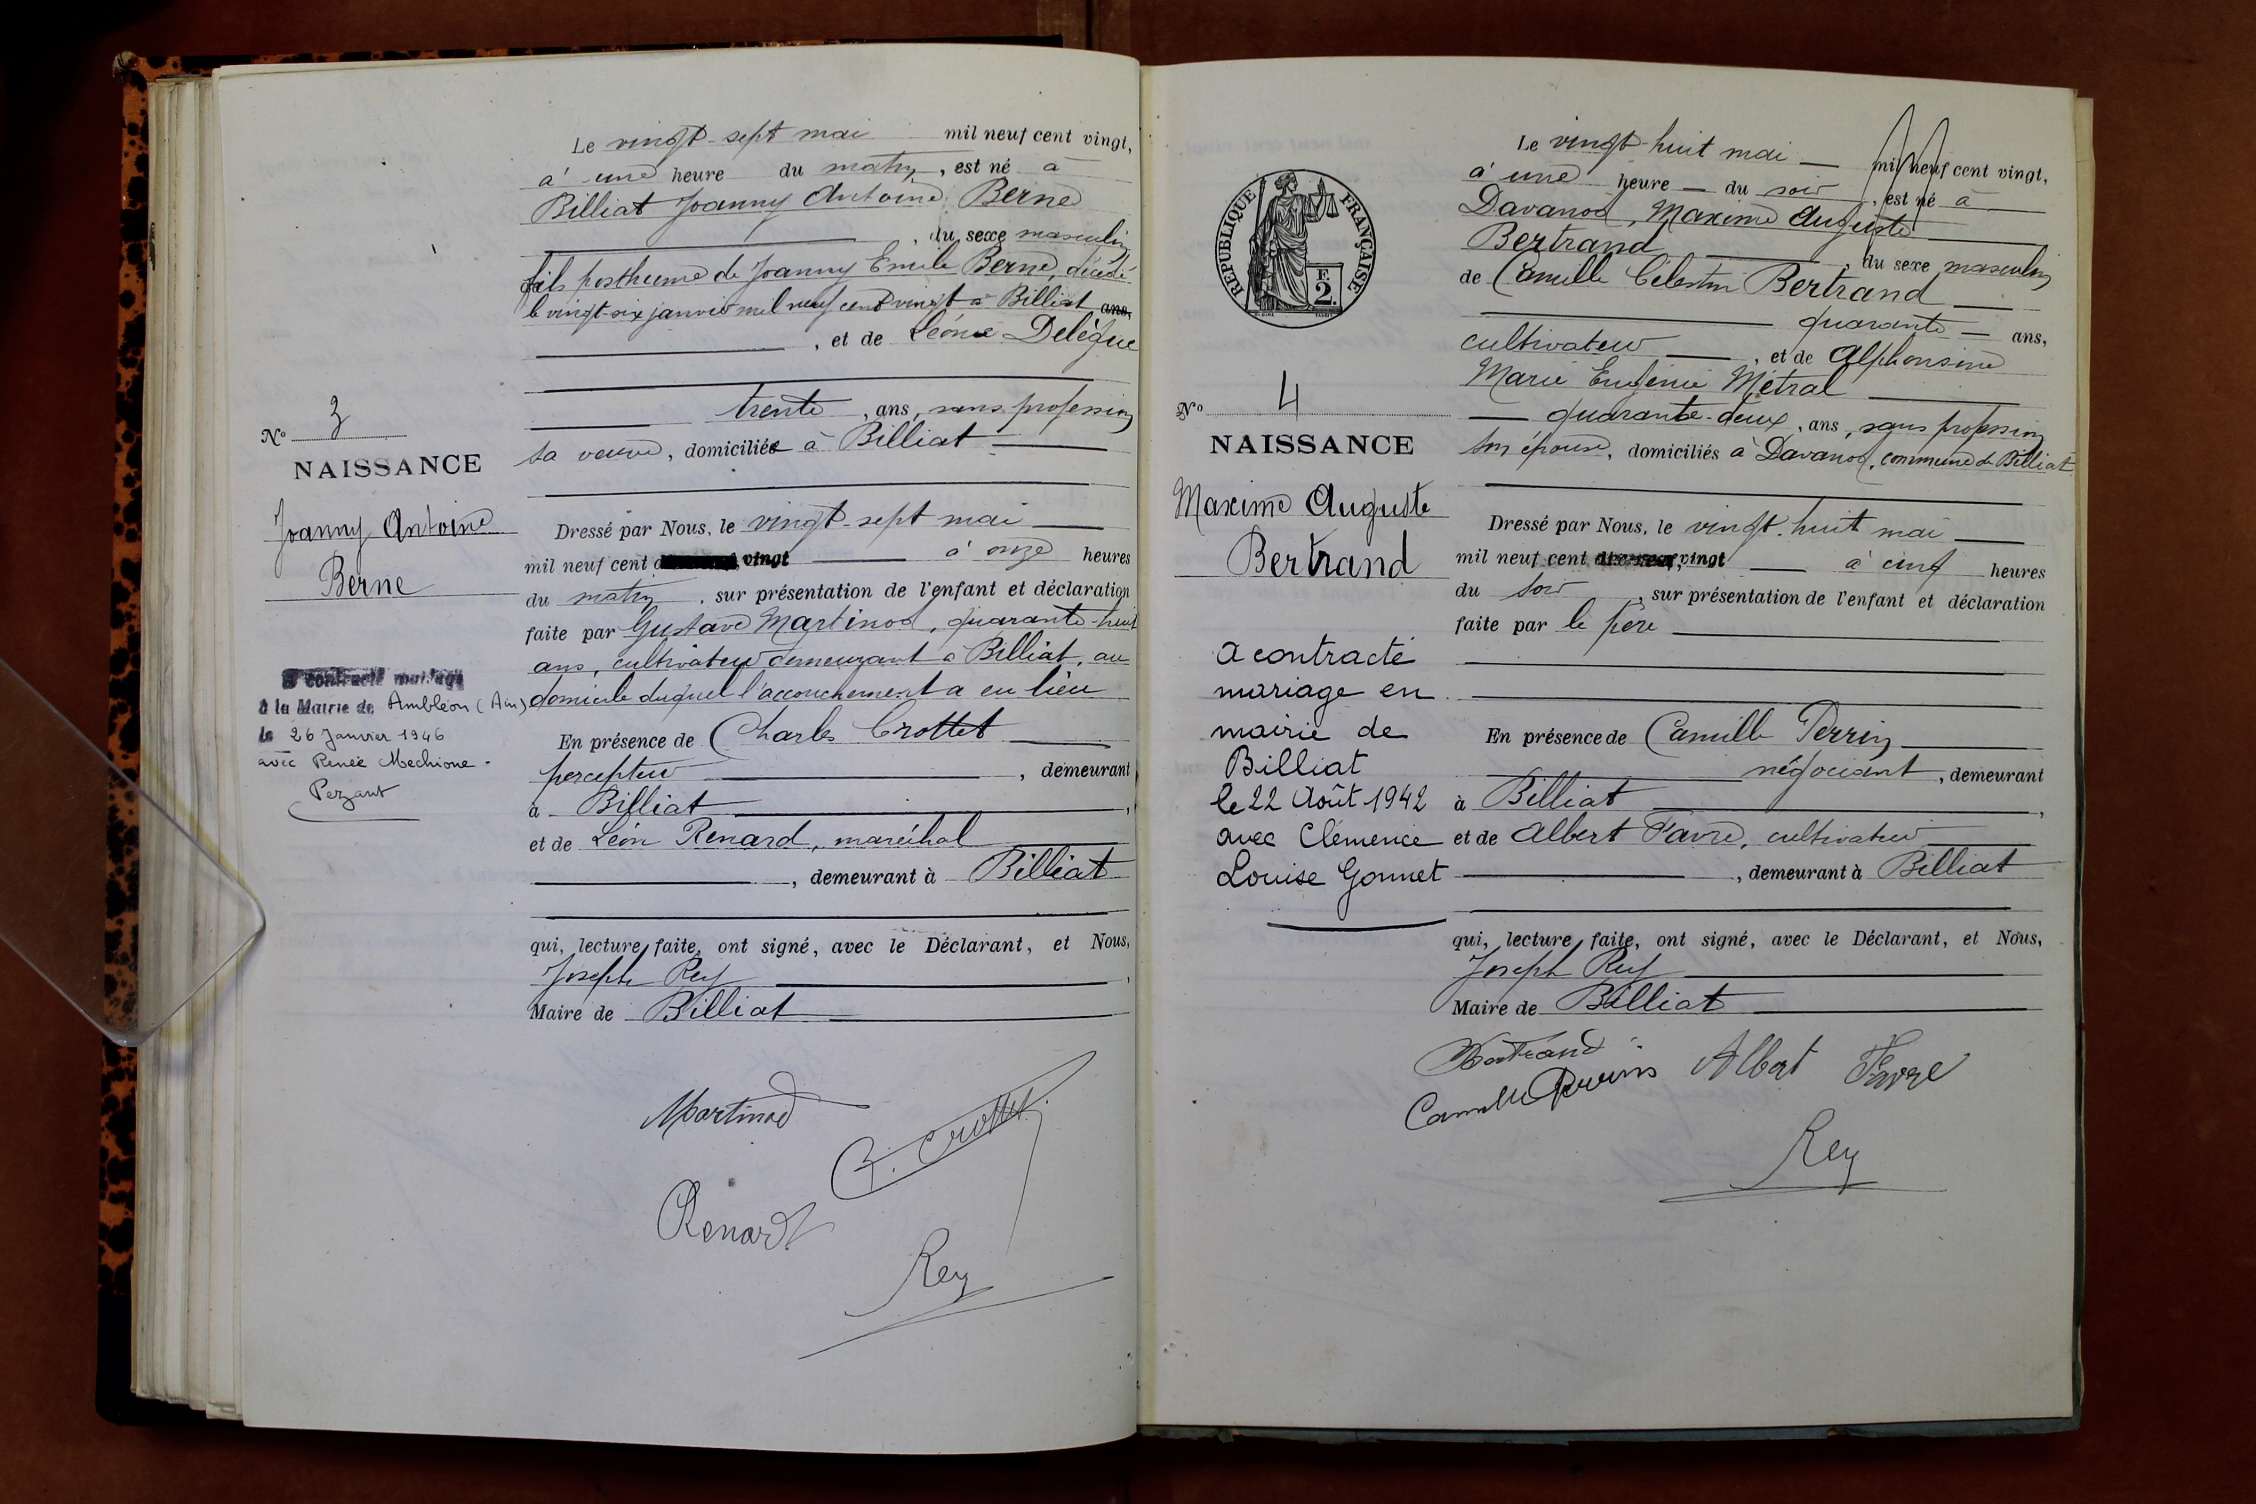 Le vingt-sept mai mil neuf cent vingt,
à une heure du matin, est né à
Billiat Joanny Antoine Berne
, du sexe masculin
fils posthume de Joanny Emile Berne, décédé
le vingt-six janvier mil neuf cent vingt à Billiat ans,
, et de Léonie Delègue
trente, ans, sans profession
sa veuve, domiciliée à Billiat
Nº 3
NAISSANCE
Joanny Antoine
Berne
Dressé par Nous, le vingt-sept mai
mil neuf cent vingt à onze heures
du matin, sur présentation de l'enfant et déclaration
faite par Gustave Martinod, quarante-huit
ans, cultivateur demeurant à Billiat, au
domicile duquel l'accouchement a eu lieu
A contracté mariage
à la Mairie de Ambléon (Ain)
le 26 Janvier 1946
avec Renée Mechione -
Pezant
En présence de Charles Crottet
percepteur, demeurant
à Billiat,
et de Léon Renard, maréchal
, demeurant à Billiat
qui, lecture faite, ont signé, avec le Déclarant, et Nous,
Joseph Rey,
Maire de Billiat
Martinod
C. Crottet
Renard
Rey
Le vingt-huit mai mil neuf cent vingt,
à une heure du soir, est né à
Davanod, Maxime Auguste
Bertrand, du sexe masculin
de Camille Célestin Bertrand
quarante ans,
cultivateur, et de Alphonsine
Marie Eugénie Métral
quarante-deux, ans, sans profession
son épouse, domiciliés à Davanod, commune de Billiat
RÉPUBLIQUE FRANÇAISE
F.
2.
Nº 4
NAISSANCE
Maxime Auguste
Bertrand
Dressé par Nous, le vingt-huit mai
mil neuf cent vingt à cinq heures
du soir, sur présentation de l'enfant et déclaration
faite par le père
a contracté
mariage en
mairie de
Billiat
le 22 Août 1942
avec Clémence
Louise Gonnet
En présence de Camille Perrin
négociant, demeurant
à Billiat,
et de Albert Favre, cultivateur
, demeurant à Billiat
qui, lecture faite, ont signé, avec le Déclarant, et Nous,
Joseph Rey
Maire de Billiat
Bertrand
Camille Perrin Albert Favre
Rey